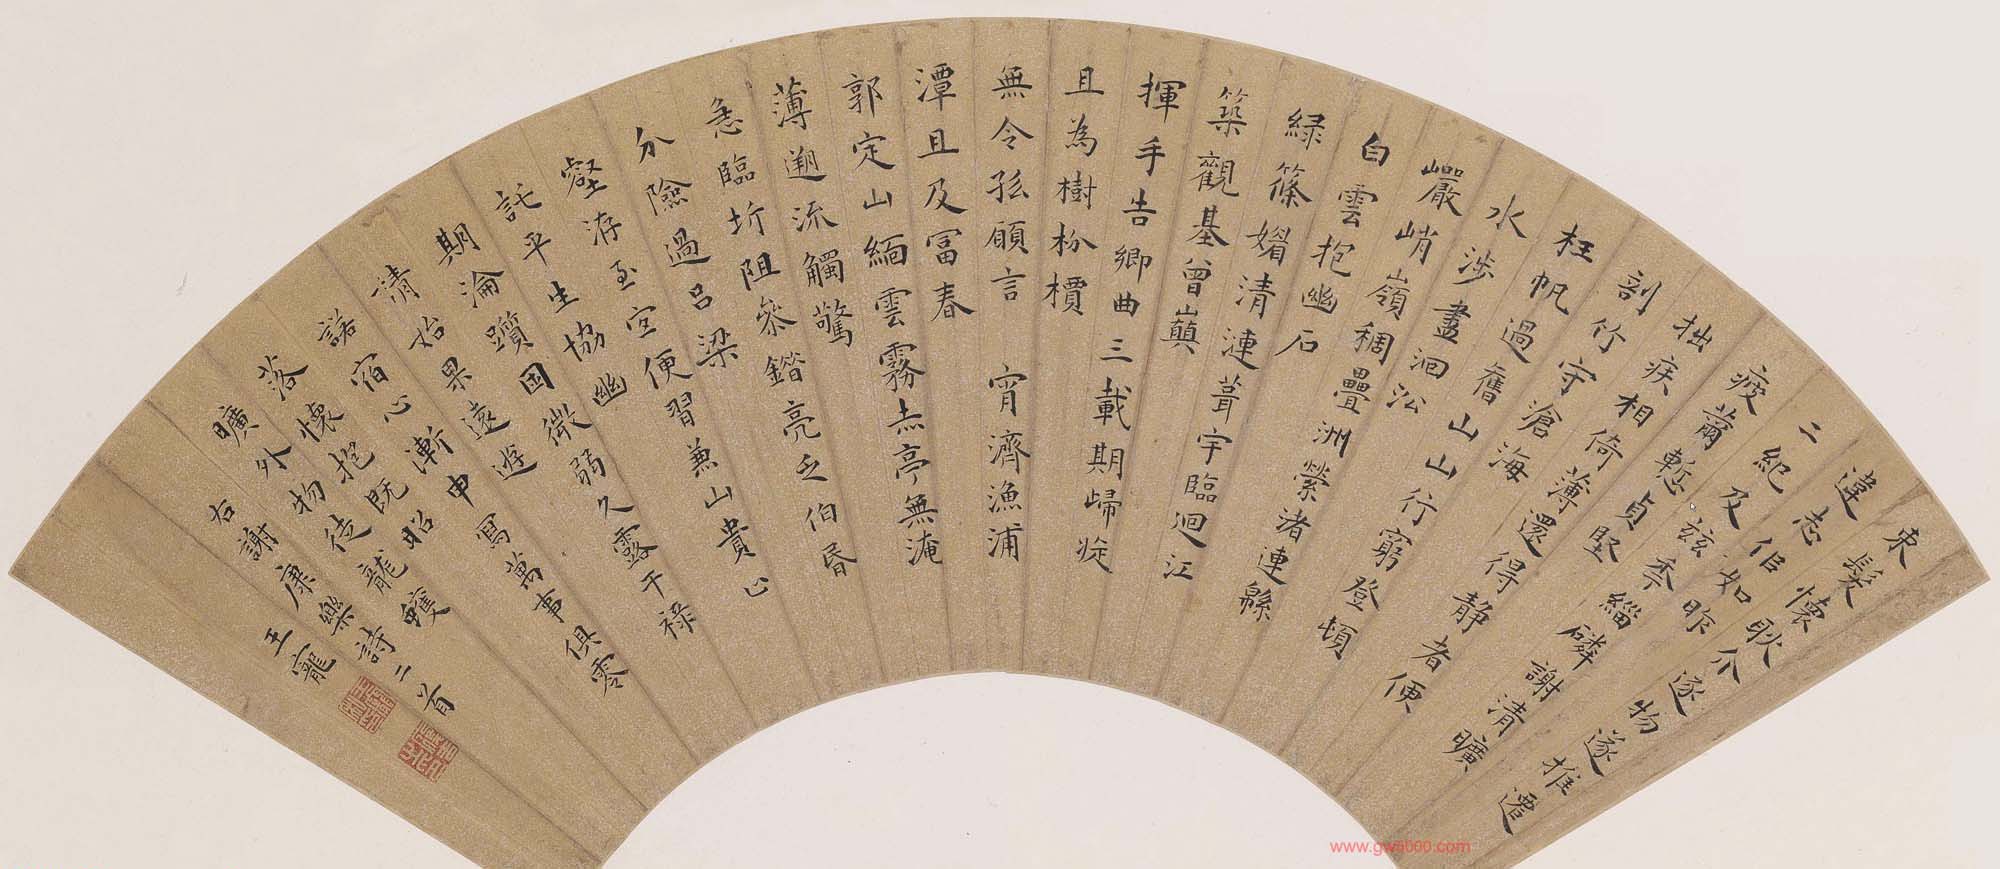 束髮懷耿介逐物遂推遷
違志佀如昨
二紀及茲秊緇磷謝清曠
疲薾慙貞堅
拙疾相倚薄還得静者便
剖竹守滄海
枉帆過舊山山行窮登頓
水涉盡洄㳂
巖峭嶺稠疊洲縈渚連緜
白雲抱幽石
緑篠媚清漣葺宇臨迴江
築觀基曾巔
揮手告鄉曲三載期歸旋
且為樹枌檟
無令孤願言 宵濟漁浦
潭旦及富春
郭定山緬雲霧赤亭無淹
薄遡流觸驚
急臨圻阻參錯亮乏伯昏
分險過呂梁
壑洊至宜便習兼山貴止
託平生協幽
期淪躓困微弱久露干祿
請始果遠遊
諾宿心漸申寫萬事俱零
落懷抱既昭
曠外物徒龍蠖
右謝康樂詩二首
王寵
www.gw8000.com